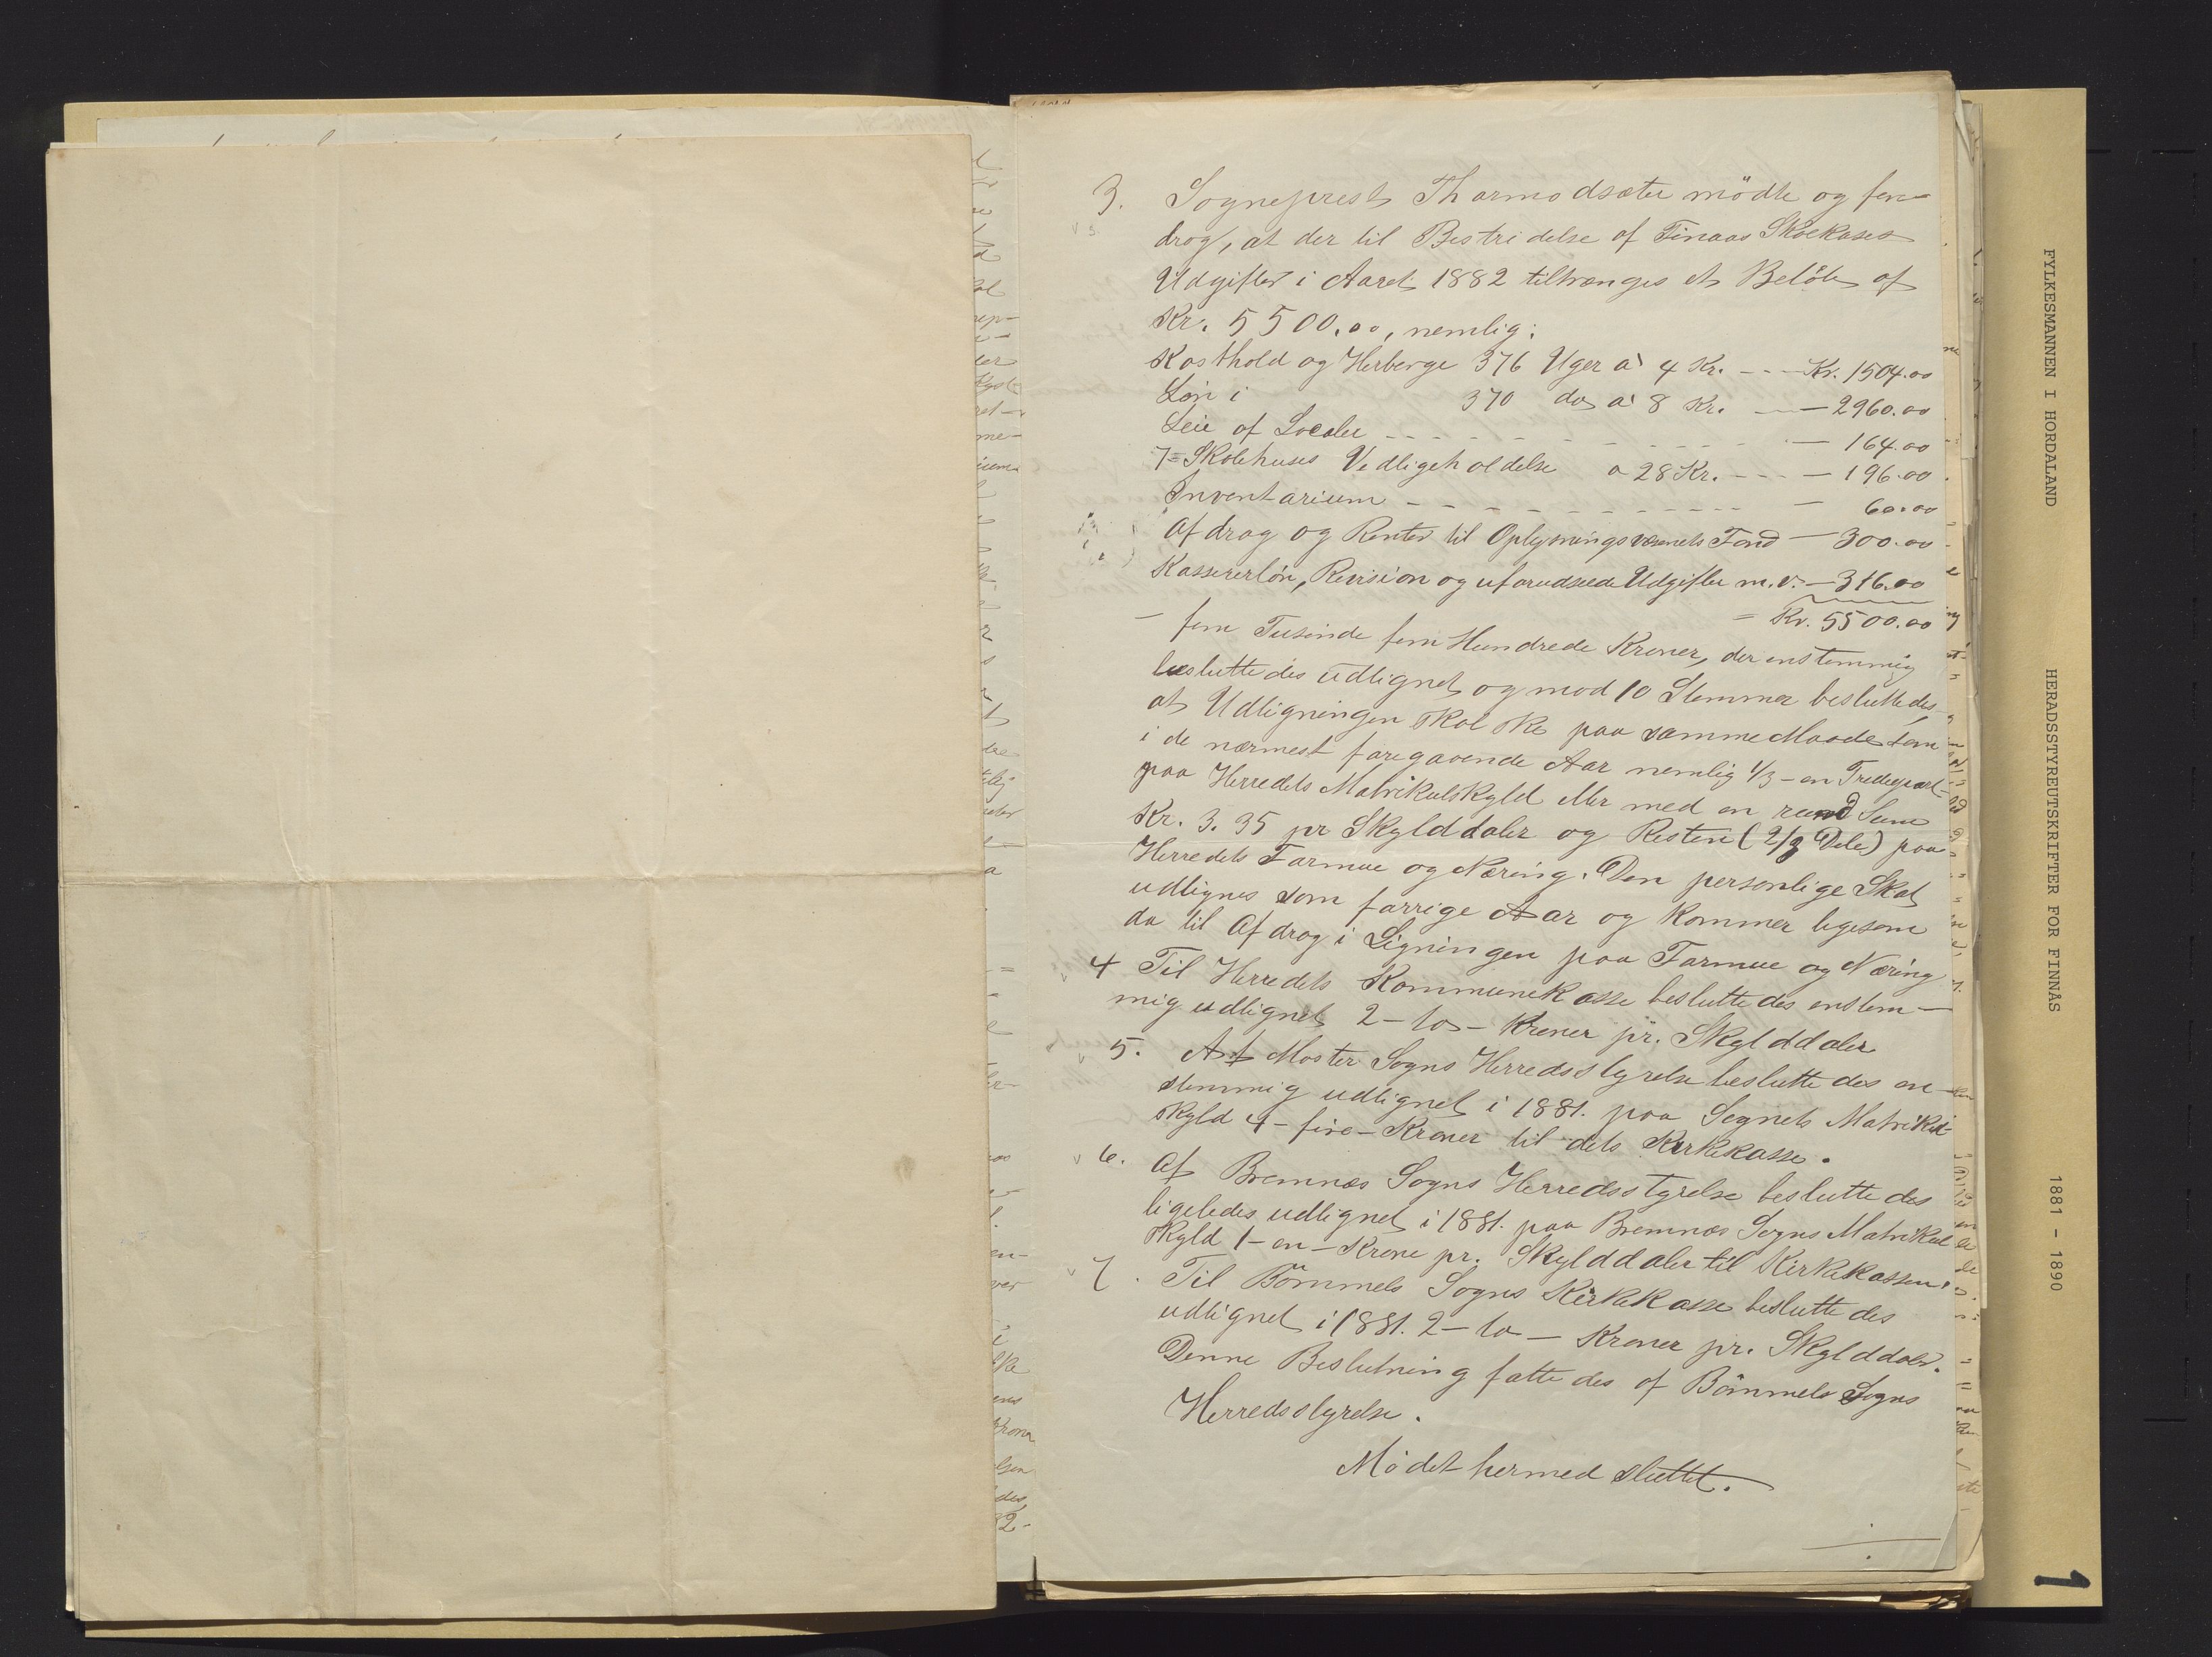 3. Sogneprest Thormodsæter mödte og fore-
drog, at der til Bestridelse af Finaas Skolekases
Udgifter i Aaret 1882 tiltrænges et Belöb af
Kr. 5500.00, nemlig:
Kosthold og Herberge 376 Uger a 4 Kr. --- Kr. 1504.00
Lön i 370 do a 8 Kr. — — 2960.00
Leie af Locale - - - - - - - - - — 164.00
7= Skolehuses Vedligeholdelse a 28 Kr. --- — 196.00
Inventarium - - - - - - - - - — 60.00
Afdrag og Renter til Oplysningsvæsenets Fond — 300.00
Kassererlön, Revision og uforudseede Udgifter m.v. — 316.00
= Kr. 5500.00
— fem Tusinde fem Hundrede Kroner, der enstemmig
besluttedes udlignet og mod 10 Stemmer besluttedes,
at Udligningen skal ske paa samme Maade som
i de nærmest foregaaende Aar nemlig 1/3 - en Trediepart -
paa Herredets Matrikulskyld eller med en rund Sum
Kr. 3.35 pr Skylddaler og Resten (2/3 Dele) paa
Herredets Formue og Næring. Den personlige Skat
udlignes som forrige Aar og kommer ligesom
da til Afdrag i Ligningen paa Formue og Næring
4 Til Herredets Kommunekasse besluttedes enstem-
mig udlignet 2 - to - Kroner pr. Skylddaler
5. Af Moster Sogns Herredsstyrelse besluttedes en-
stemmig udlignet i 1881. paa Sognets Matrikul-
skyld 4 - fire - Kroner til dets Kirkekasse.
6. Af Bremnæs Sogns Herredsstyrelse besluttedes
ligeledes udlignet i 1881. paa Bremnæs Sogns Matrikul
skyld 1 - en - Krone pr. Skylddaler til Kirkekassen.
7. Til Bömmels Sogns Kirkekasse besluttedes
udlignet i 1881. 2 - to - Kroner pr. Skylddaler.
Denne Beslutning fattedes af Bömmels Sogns
Herredsstyrelse.
Mödet hermed sluttet.
FYLKESMANNEN I HORDALAND
HERADSSTYREUTSKRIFTER FOR FINNÅS
1881 - 1890
1